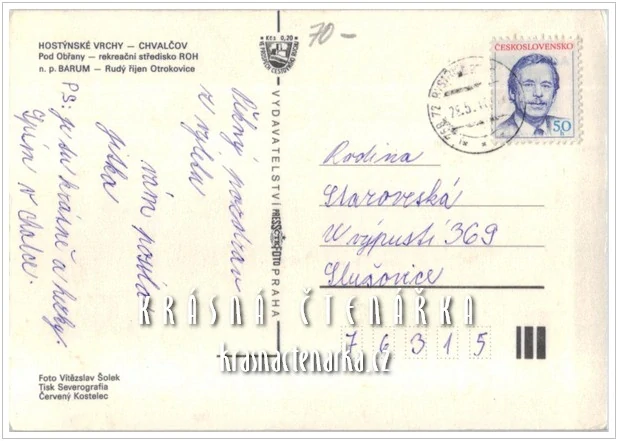 HOSTÝNSKÉ VRCHY – CHVALČOV
Pod Obřany – rekreační středisko ROH
n. p. BARUM – Rudý říjen Otrokovice
Kčs 0,20
70-
ČESKOSLOVENSKO
50
h
VYDAVATELSTVÍ PRESSFOTO PRAHA
Pěkný pozdrav
z výletu
vám posílá
Jitka
PS: je tu krásně a hezky.
Spím v chatce.
Rodina
Staroveská
U výpustí 369
Slušovice
76315
KRÁSNÁ ČTENÁŘKA
krasnactenarka.cz
Foto Vítězslav Šolek
Tisk Severografia
Červený Kostelec